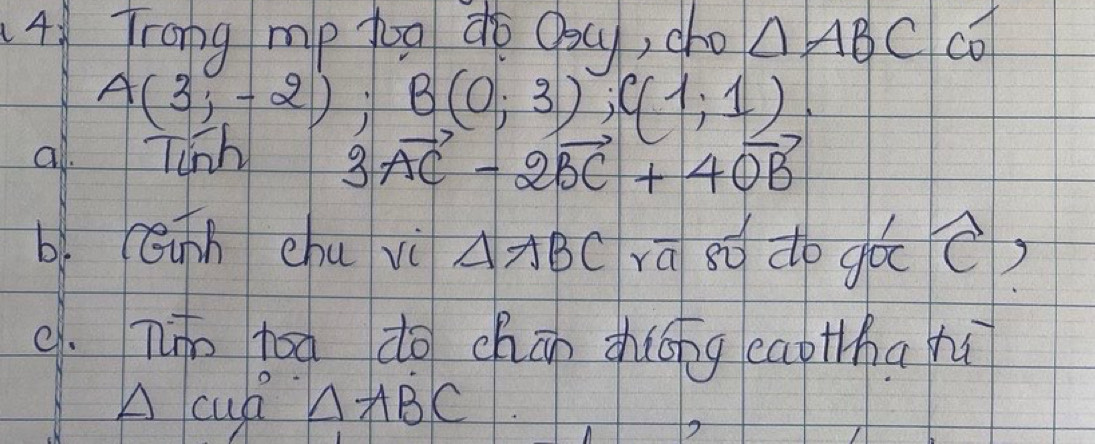 4. Trong mp toạ độ Oxy, cho Δ ABC có
A(3; -2); B(0; 3); C(1; 1).
a. Tính 3AC⃗ - 2BC⃗ + 4OB⃗
b. Tính chu vi ΔABC và số đo góc Ĉ?
c. Tìm toạ độ chân đường cao hạ từ
Δ của ΔABC.